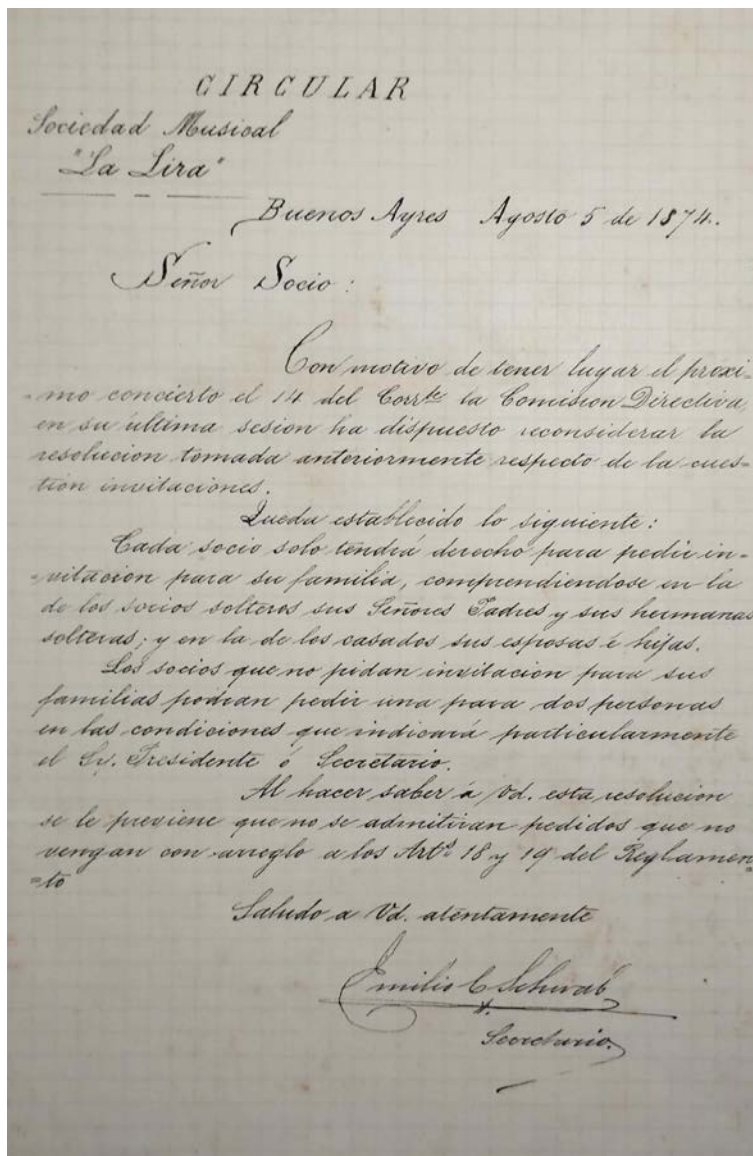 CIRCULAR
Sociedad Musical
"La Lira"
Buenos Ayres Agosto 5 de 1874.
Señor Socio:
Con motivo de tener lugar el próxi-
-mo concierto el 14 del Corrte la Comision Directiva
en su última sesion ha dispuesto reconsiderar la
resolucion tomada anteriormente respecto de la cues-
tion invitaciones.
Queda establecido lo siguiente:
Cada socio solo tendrá derecho para pedir in-
-vitacion para su familia, comprendiendose en la
de los socios solteros sus Señores Padres y sus hermanas
solteras; y en la de los casados sus esposas é hijas.
Los socios que no pidan invitacion para sus
familias podran pedir una para dos personas
en las condiciones que indicará particularmente
el Sr. Presidente ó Secretario.
Al hacer saber á Vd. esta resolucion
se le previene que no se admitiran pedidos que no
vengan con arreglo a los Arts 18 y 19 del Reglamen=
=to
Saludo a Vd. atentamente
Emilio C Schwab
Secretario.